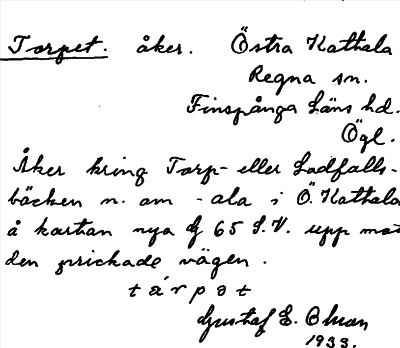 Torpet. åker. Östra Kathala
Regna sn.
Finspånga Läns hd.
Ögl.
Åker kring Torp- eller Ladfalls-
bäcken n. om -ala i Ö. Kathala
å kartan nya G 65 S.V. upp mot
den prickade vägen.
tárpət
Gustaf E. Olsson
1933.